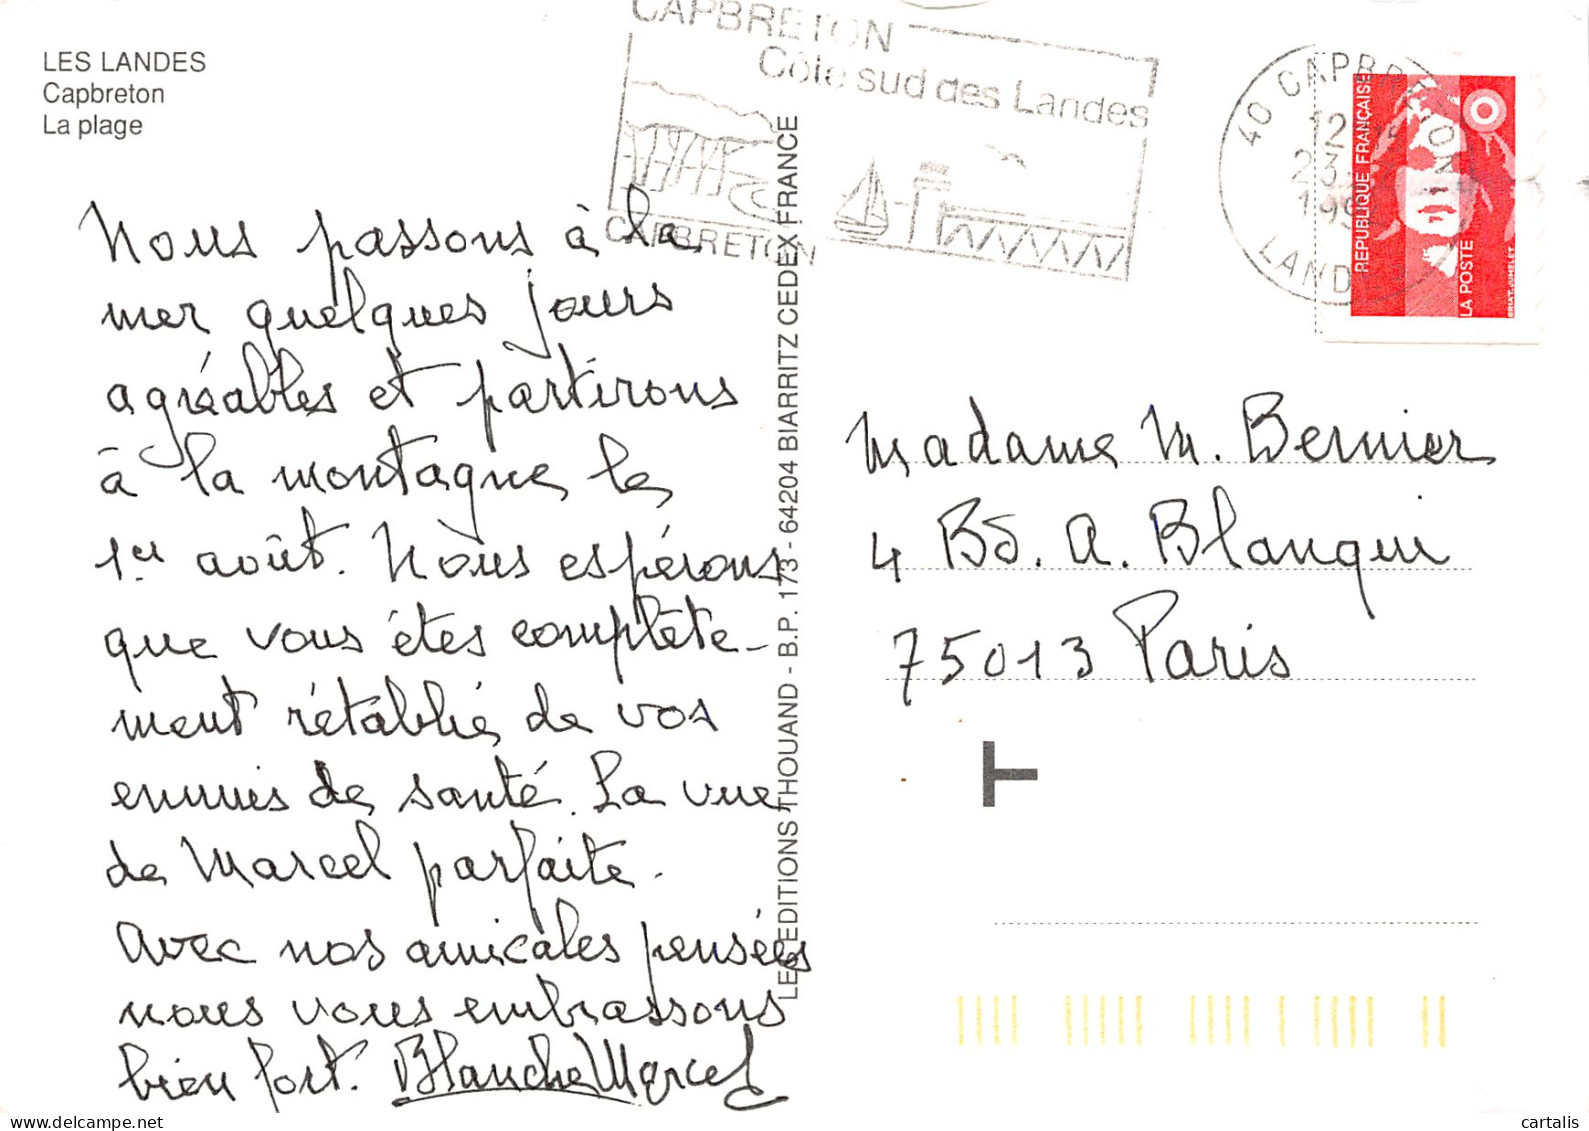 LES LANDES
Capbreton
La plage
CAPBRETON
Côte sud des Landes
CAPBRETON
40 CAPBRETON
12
23
LANDES
RÉPUBLIQUE FRANÇAISE
LA POSTE
BRIAT-JUMELET
Nous passons à la
mer quelques jours
agréables et partirons
à la montagne le
1er août. Nous espérons
que vous êtes complète-
ment rétablie de vos
ennuis de santé. La vue
de Marcel parfaite.
Avec nos amicales pensées
nous vous embrassons
bien fort. Blanche Marcel
LES EDITIONS THOUAND - B.P. 173 - 64204 BIARRITZ CEDEX FRANCE
Madame M. Bernier
4 Bd. A. Blanqui
75013 Paris
T
cartalis